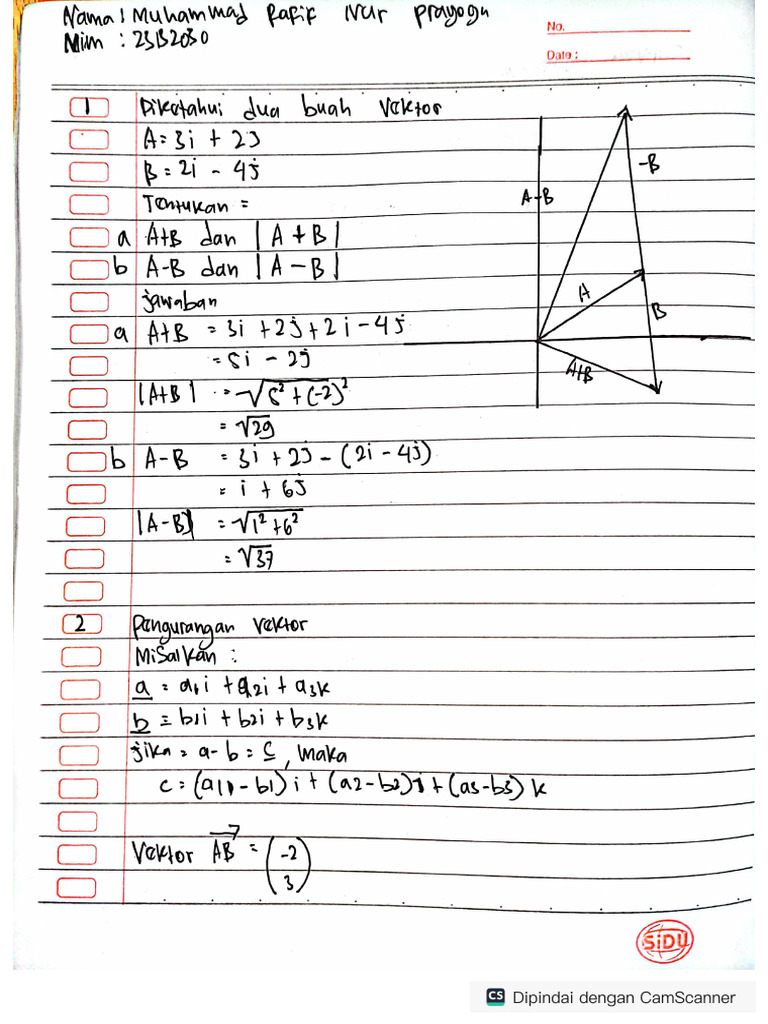 Nama : Muhammad Rafif Nur Prayoga
Nim : 23132030
No.
Date :
1 Diketahui dua buah Vektor
A = 3i + 2j
B = 2i - 4j
Tentukan =
a A+B dan |A + B|
b A-B dan |A - B|
jawaban
a A+B = 3i + 2j + 2i - 4j
= 5i - 2j
|A+B| = √5² + (-2)²
= √29
b A-B = 3i + 2j - (2i - 4j)
= i + 6j
|A-B| = √1² + 6²
= √37
A-B
-B
A
B
A+B
2 Pengurangan Vektor
Misalkan :
a = a1i + a2i + a3k
b = b1i + b2i + b3k
jika = a - b = c, maka
c = (a1 - b1) i + (a2 - b2) j + (a3 - b3) k
Vektor AB = (-2
3)
SiDU
CS Dipindai dengan CamScanner